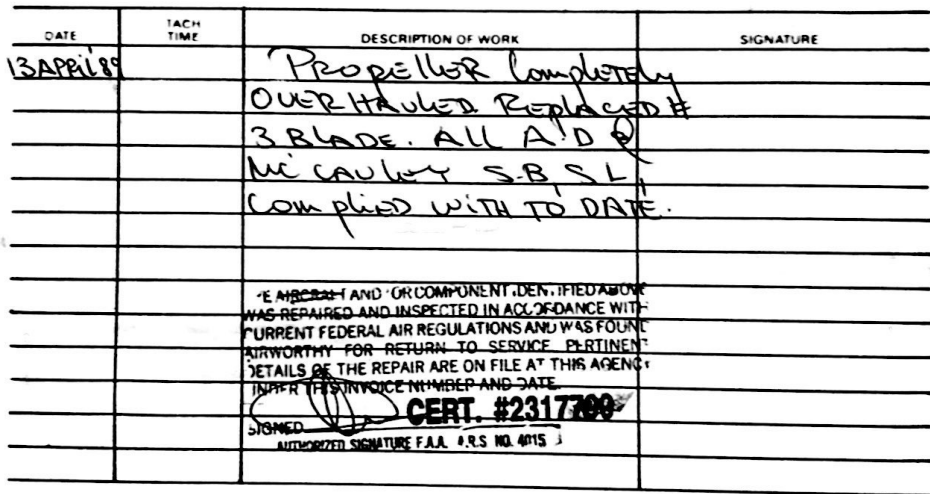 DATE TACH TIME DESCRIPTION OF WORK SIGNATURE
13 APRil 89 PROPELLER COMPLETELY
OVERHAULED REPLACED #
3 BLADE. ALL A.D &
MC CAULEY S.B, S L,
COMPLIED WITH TO DATE.
E AIRCRAFT AND OR COMPONENT IDENTIFIED ABOVE
WAS REPAIRED AND INSPECTED IN ACCORDANCE WITH
CURRENT FEDERAL AIR REGULATIONS AND WAS FOUND
AIRWORTHY FOR RETURN TO SERVICE PERTINENT
DETAILS OF THE REPAIR ARE ON FILE AT THIS AGENCY
UNDER THIS INVOICE NUMBER AND DATE.
CERT. #2317700
SIGNED
AUTHORIZED SIGNATURE F.A.A. A.R.S NO. 4015